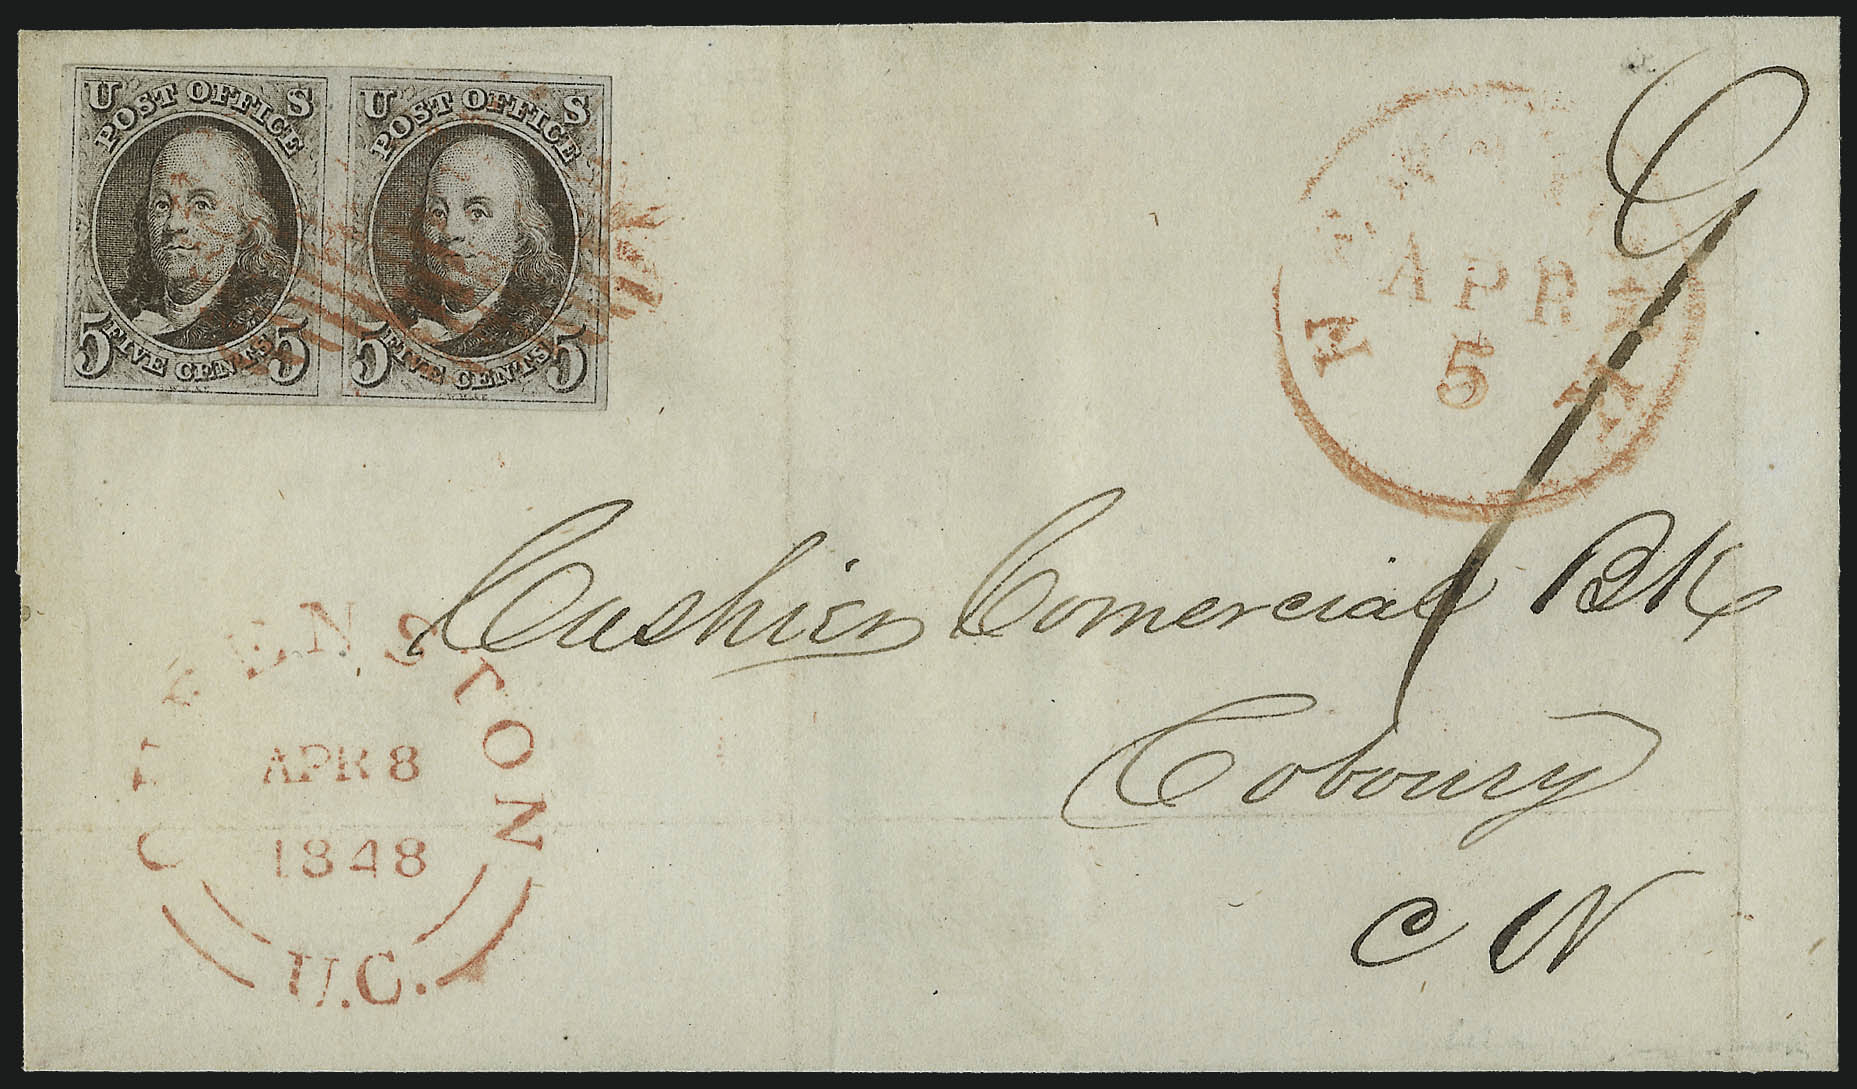 U S
POST OFFICE
5 FIVE CENTS 5
U S
POST OFFICE
5 FIVE CENTS 5
APR
5
9
Cashier Comercial BK
Cobourg
C W
QUEENSTON
APR 8
1848
U.C.